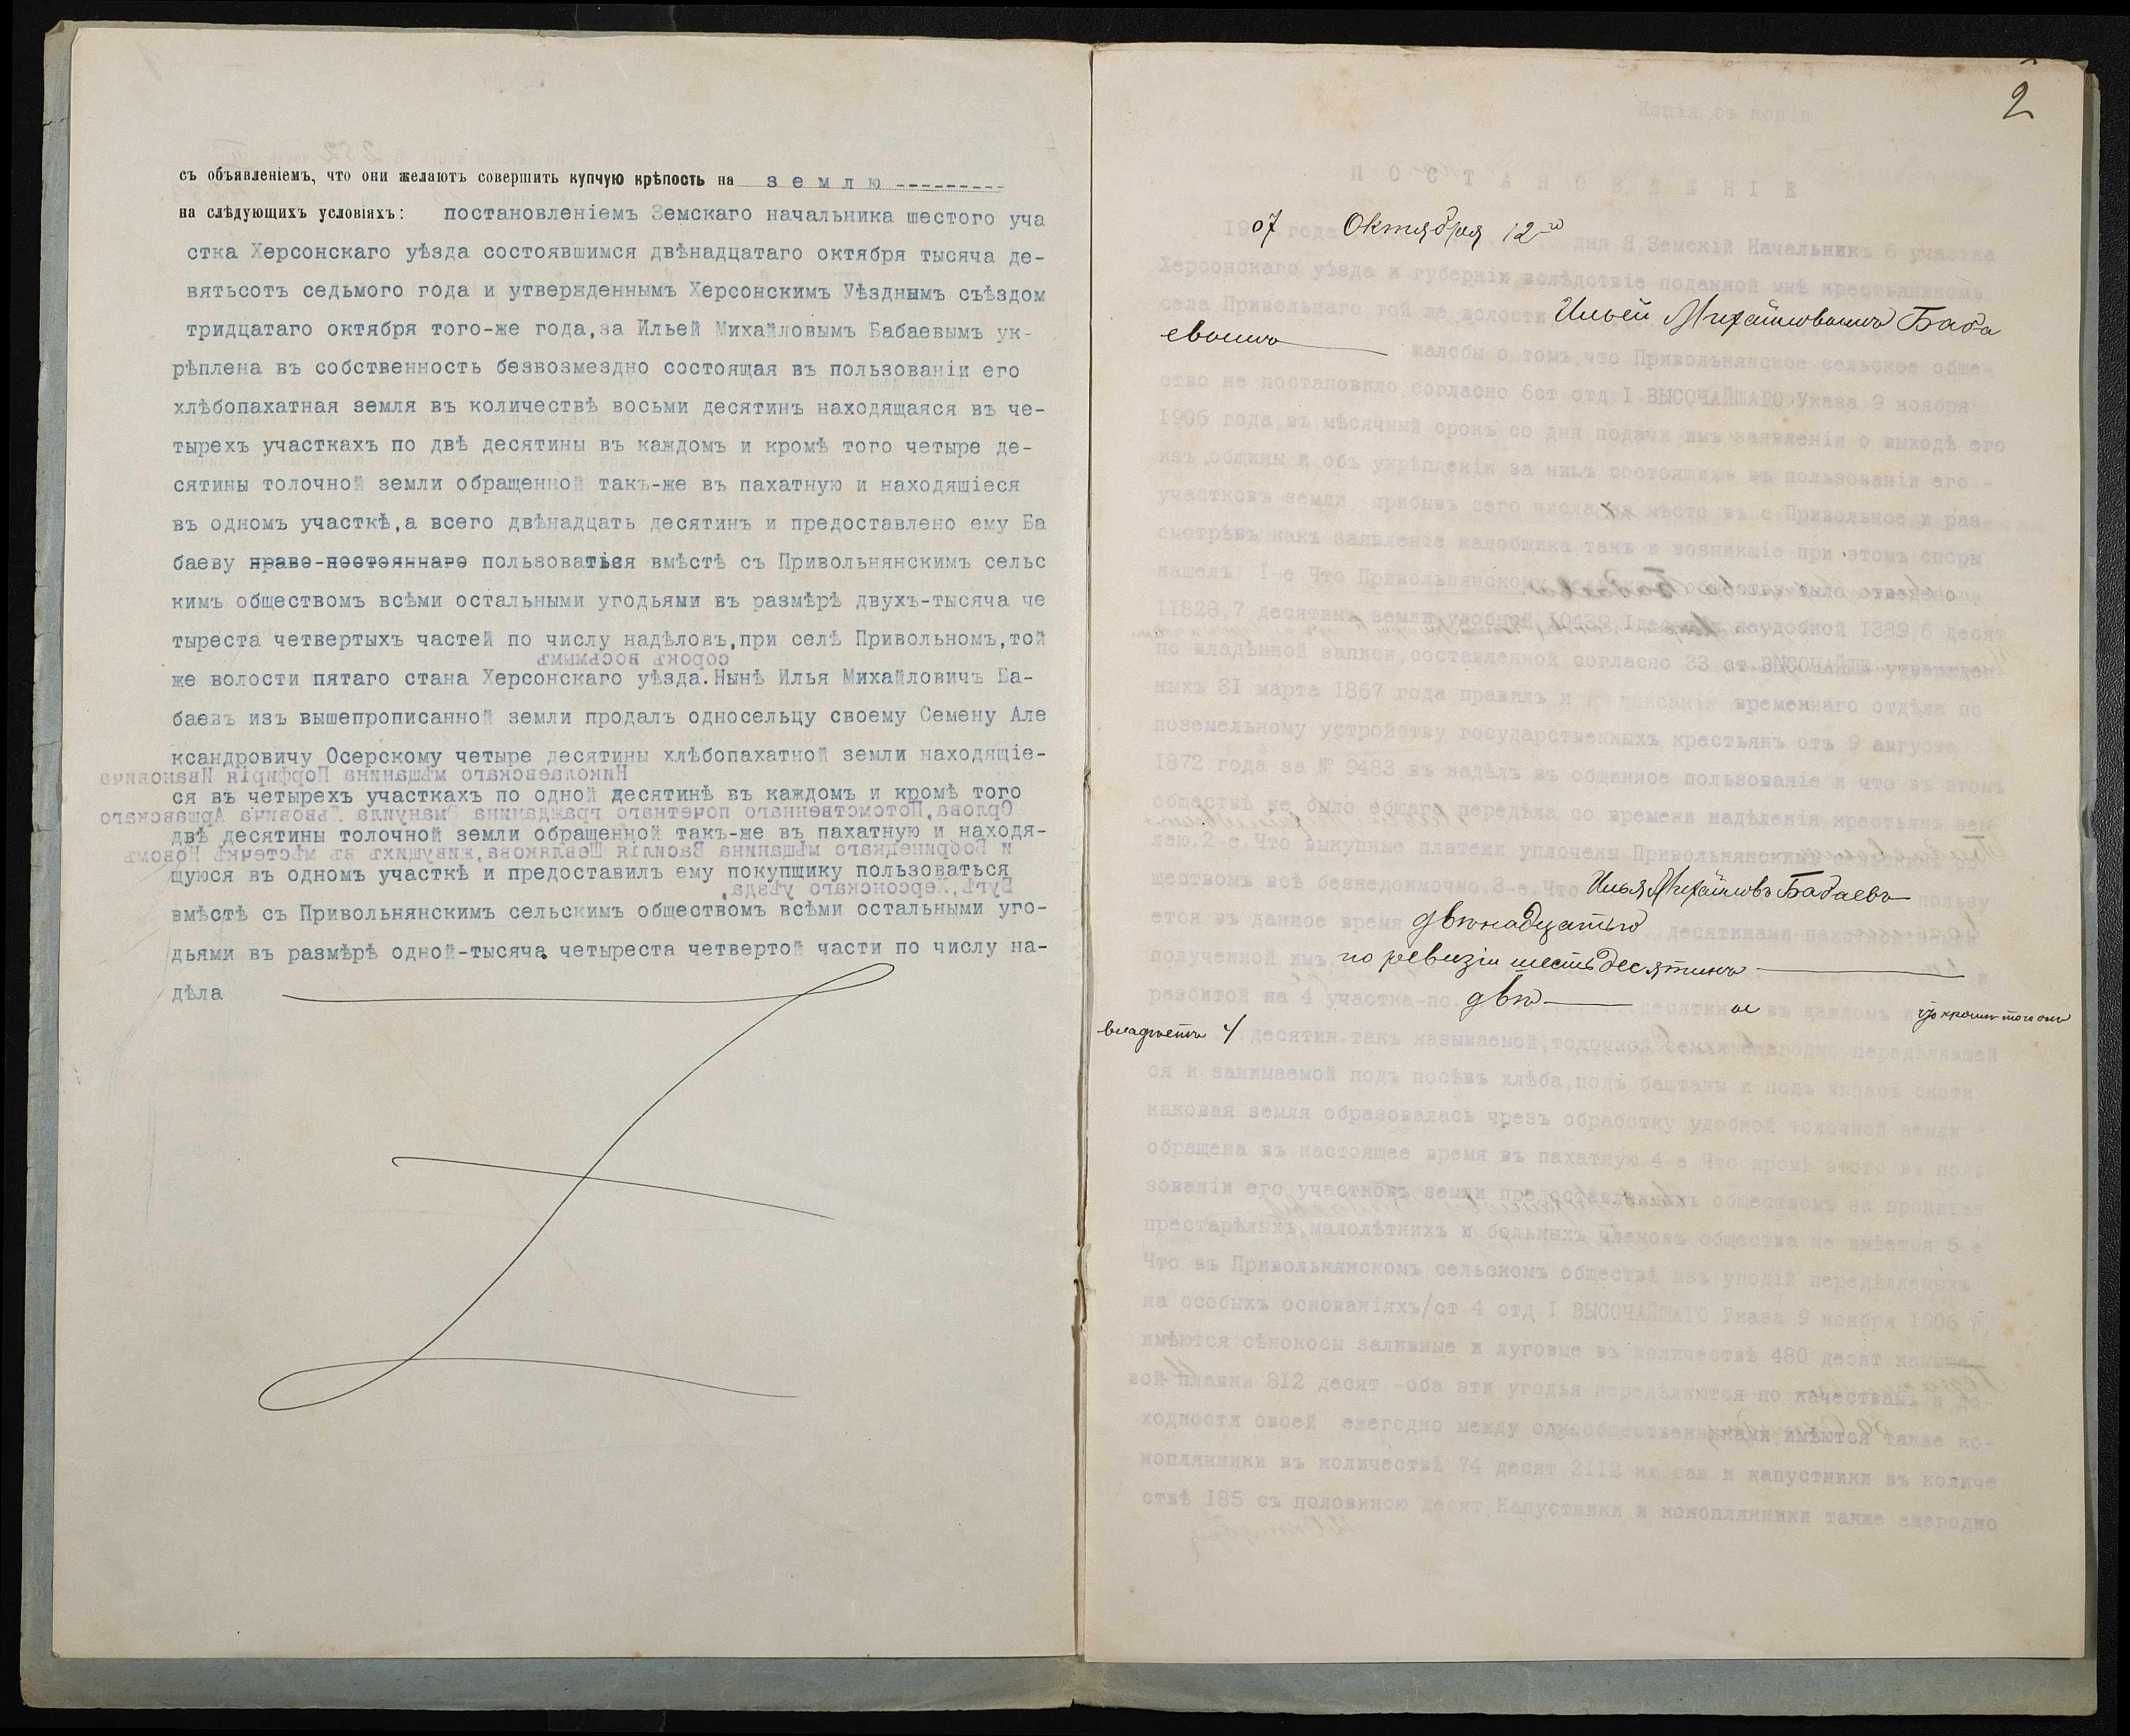 съ объявленіемъ, что они желаютъ совершить купчую крѣпость на землю ---------
на слѣдующихъ условіяхъ: постановленіемъ Земскаго начальника шестого уча
стка Херсонскаго уѣзда состоявшимся двѣнадцатаго октября тысяча де-
вятьсотъ седьмого года и утвержденнымъ Херсонскимъ Уѣзднымъ съѣздом
тридцатаго октября того-же года,за Ильей Михайловымъ Бабаевымъ ук-
рѣплена въ собственность безвозмездно состоящая въ пользованіи его
хлѣбопахатная земля въ количествѣ восьми десятинъ находящаяся въ че-
тырехъ участкахъ по двѣ десятины въ каждомъ и кромѣ того четыре де-
сятины толочной земли обращенной такъ-же въ пахатную и находящіеся
въ одномъ участкѣ,а всего двѣнадцать десятинъ и предоставлено ему Ба
баеву право-постояннаго пользоваться вмѣстѣ съ Привольнянскимъ сельс
кимъ обществомъ всѣми остальными угодьями въ размѣрѣ двухъ-тысяча че
тыреста четвертыхъ частей по числу надѣловъ,при селѣ Привольномъ,той
сорокъ восьмымъ
же волости пятаго стана Херсонскаго уѣзда.Нынѣ Илья Михайловичъ Ба-
баевъ изъ вышепрописанной земли продалъ односельцу своему Семену Але
ксандровичу Осерскому четыре десятины хлѣбопахатной земли находящіе-
Николаевскаго мѣщанина Порфирія Ивановича
ся въ четырехъ участкахъ по одной десятинѣ въ каждомъ и кромѣ того
Орлова,Потомственнаго почетнаго гражданина Эмануила Львовича Аршавскаго
двѣ десятины толочной земли обращенной такъ-же въ пахатную и находя-
и Бобринецкаго мѣщанина Василія Шевлякова,живущихъ въ мѣстечкѣ Новомъ
щуюся въ одномъ участкѣ и предоставилъ ему покупщику пользоваться
Бугѣ,Херсонскаго уѣзда,
вмѣстѣ съ Привольнянскимъ сельскимъ обществомъ всѣми остальными уго-
дьями въ размѣрѣ одной-тысяча четыреста четвертой части по числу на-
дѣла
2
Копія съ копіи
ПОСТАНОВЛЕНІЕ
1907 года Октября 12го дня Я,Земскій Начальникъ 6 участка
Херсонскаго уѣзда и губерніи вслѣдствіе поданной мнѣ крестьяниномъ
села Привольнаго той же волости Ильей Михайловымъ Баба
евымъ жалобы о томъ,что Привольнянское сельское обще-
ство не постановило согласно 6ст отд I ВЫСОЧАЙШАГО Указа 9 ноября
1906 года,въ мѣсячный срокъ со дня подачи имъ заявленія о выходѣ его
изъ общины и объ укрѣпленіи за нимъ состоящихъ въ пользованіи его -
участковъ земли, прибывъ сего числа на мѣсто въ с Привольное и раз-
смотрѣвъ какъ заявленіе жалобщика такъ и возникшіе при этомъ споры
нашелъ: I-е Что Привольнянскому
11828,7 десятинъ земли удобной 10439,1 десят и неудобной 1389,6 десят
по владѣнной записи,составленной согласно 33 ст ВЫСОЧАЙШЕ утвержден-
ныхъ 31 марта 1867 года правилъ и предписанія временнаго отдѣла по
поземельному устройству государственныхъ крестьянъ отъ 9 августа
1872 года за № 9483 въ надѣлъ въ общинное пользованіе и что въ этомъ
обществѣ не было общаго передѣла со времени надѣленія крестьянъ зем
лею.2-е.Что выкупные платежи уплочены Привольнянскимъ сельскимъ об
ществомъ всѣ безнедоимочно.3-е.Что Илья Михайловъ Бабаевъ пользу
ется въ данное время двѣнадцатью десятинами пахотной земли
полученной имъ по ревизіи шесть десятинъ и
разбитой на 4 участка-по двѣ десятины въ каждомъ и что кромѣ того онъ
владѣетъ 4 десятин.такъ называемой,толочной земли ежегодно передѣлявшей
ся и занимаемой подъ посѣвъ хлѣба,подъ баштаны и подъ выпасъ скота
каковая земля образовалась чрезъ обработку удобной толочной земли -
обращена въ настоящее время въ пахатную 4-е Что кромѣ этого въ поль
зованіи его участковъ земли предоставленныхъ обществомъ за пропитан
престарѣлыхъ,малолѣтнихъ и больныхъ членовъ общества не имѣется 5-е
Что въ Привольнянскомъ сельскомъ обществѣ изъ угодій передѣляемыхъ
на особыхъ основаніяхъ/ст 4 отд I ВЫСОЧАЙШАГО Указа 9 ноября 1906 г
имѣются сѣнокосы заливные и луговые въ количествѣ 480 десят камыше
вой плавни 812 десят -оба эти угодья передѣляются по качествамъ и до-
ходности своей ежегодно между однообщественниками имѣются также ко-
ноплянники въ количествѣ 74 десят 2112 кв саж и капустники въ количе
ствѣ 185 съ половиною десят Капустники и коноплянники также ежегодно